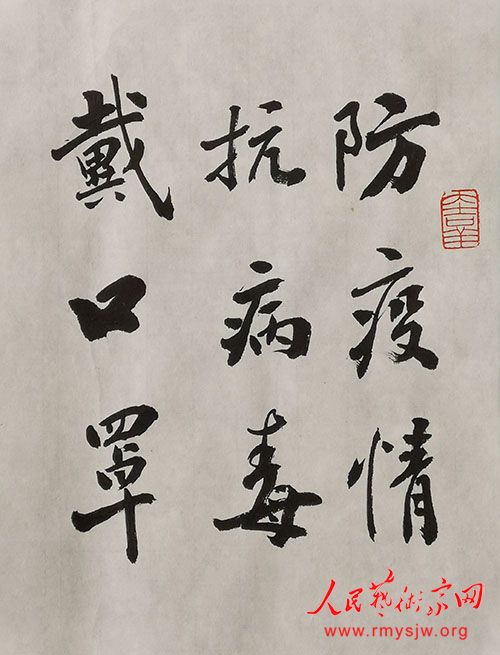 防疫情
抗病毒
戴口罩
人民藝術家网
www.rmysjw.org